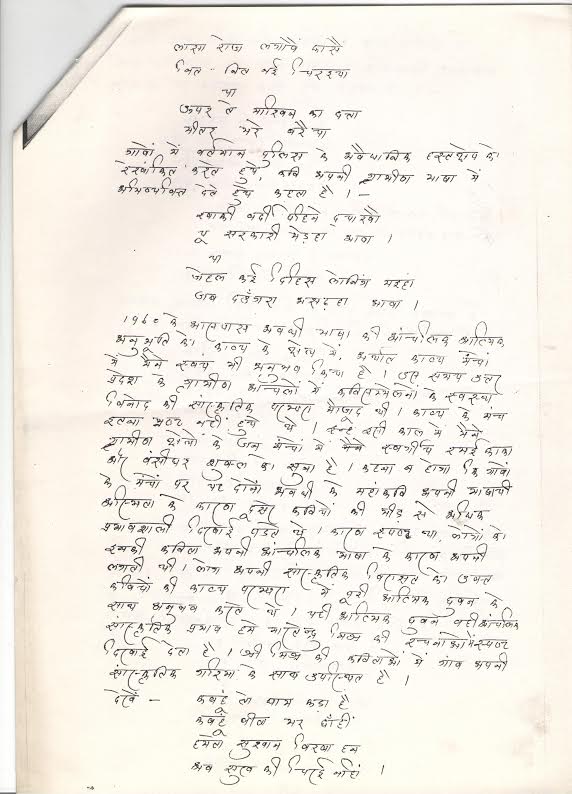 लासा रोज लगावैं कासै
या
ऊपर ते मारिकन का छत्ता
भीतर भरे बरैया
गावों में वर्तमान पुलिस के अवैधानिक हस्तक्षेप को
रेखांकित करते हुये, कवि अपनी ग्रामीण भाषा में
अभिव्यक्ति देते हुये कहता है ।—
खाकी वर्दी पहिने
यू सरकारी भेड़हा आवा ।
या
जेहल कई दिहिस
जब दउँगरा असढ़हा आवा ।
के आसपास अवधी भाषा की आंचलिक आत्मिक
अनुभूति को काव्य के क्षेत्र में काव्य मंचों
में मैंने स्वयं भी अनुभव किया है । उस समय उत्तर
प्रदेश के ग्रामीण अंचलों में कविसम्मेलनों के स्वस्थ
विनोद की सांस्कृतिक परम्परा मौजूद थी । काव्य के मंच
इतना भ्रष्ट नहीं हुये थे । इसी काल में मैंने
ग्रामीण क्षेत्रों के उन मंचों में स्वर्गीय रमई काका
और वंशीधर शुक्ल को सुना है । कहना न होगा कि गांवों
के मंचों पर यह दोनों अवधी के महाकवि अपनी भाषायी
अस्मिता के कारण दूसरे कवियों की भीड़ से अधिक
प्रभावशाली दिखाई पड़ते थे । कारण स्पष्ट था, लोगों को
इनकी कविता अपनी आंचलिक भाषा के कारण अपनी
लगती थी । लोग अपनी सांस्कृतिक विरासत को उक्त
कवियों की काव्य परम्परा में पूरी आत्मिक छुवन के
साथ अनुभव करते थे । यही आत्मिक छुवन वही आंचलिक
सांस्कृतिक प्रभाव हमें भारतेन्दु मिश्र की रचनाओं में स्पष्ट
दिखाई देता है । श्री मिश्र की कविताओं में गांव अपनी
सांस्कृतिक गरिमा के साथ उपस्थित है ।
देखें —
कबहूं तो घाम कड़ा है
कबहूं बीता भर छाँहीं
हमेला सुखान बिरवा हम
अब सुख की चिरई नाहीं ।